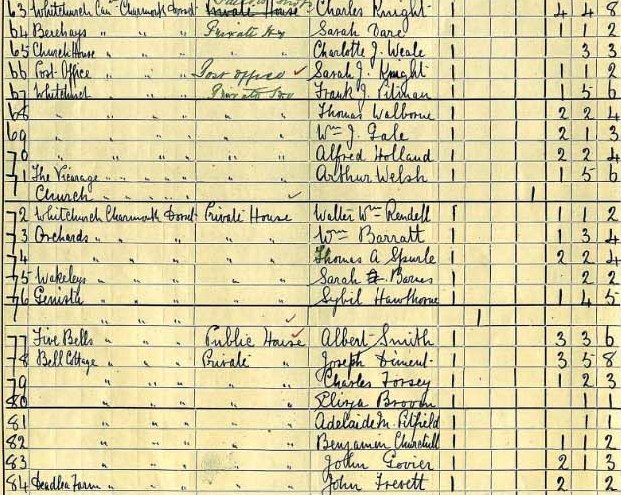 63 Whitchurch Can Charmouth Dorset Private House Charles Knight 1 4 4 8
64 Berehays " " Private Ho Sarah Dare 1 1 1 2
65 Church House " " Charlotte J. Weale 1 3 3
66 Post-Office " " Post office Sarah J. Knight 1 1 1 2
67 Whitchurch " " Private Ho Frank J. Pitman 1 1 5 6
68 " " " " " Thomas Walborne 1 2 2 4
69 " " " " " Wm J. Gale 1 2 1 3
70 " " " " " Alfred Holland 1 2 2 4
71 The Vicarage " " " " Arthur Welsh 1 1 5 6
Church " " " 1
72 Whitchurch Charmouth Dorset Private House Walter Wm Rendell 1 1 1 2
73 Orchards " " " " " Wm Barratt 1 1 3 4
74 " " " " " Thomas A Spurle 1 2 2 4
75 Wakeleys " " " " Sarah Barnes 1 2 2
76 Genista " " " " Sybil Hawthorne 1 1 4 5
1 " " " 1
77 Five Bells " " Public House Albert Smith 1 3 3 6
78 Bell Cottage " " Private " Joseph Diment 1 3 5 8
79 " " " " " Charles Forsey 1 1 2 3
80 " " " " " Eliza Broom 1 1 1
81 " " " " " Adelaide M. Pitfield 1 1 1
82 " " " " " Benjamin Churchill 1 1 1 2
83 " " " " " John Govier 1 2 1 3
84 " " " " John Trevett 1 2 2